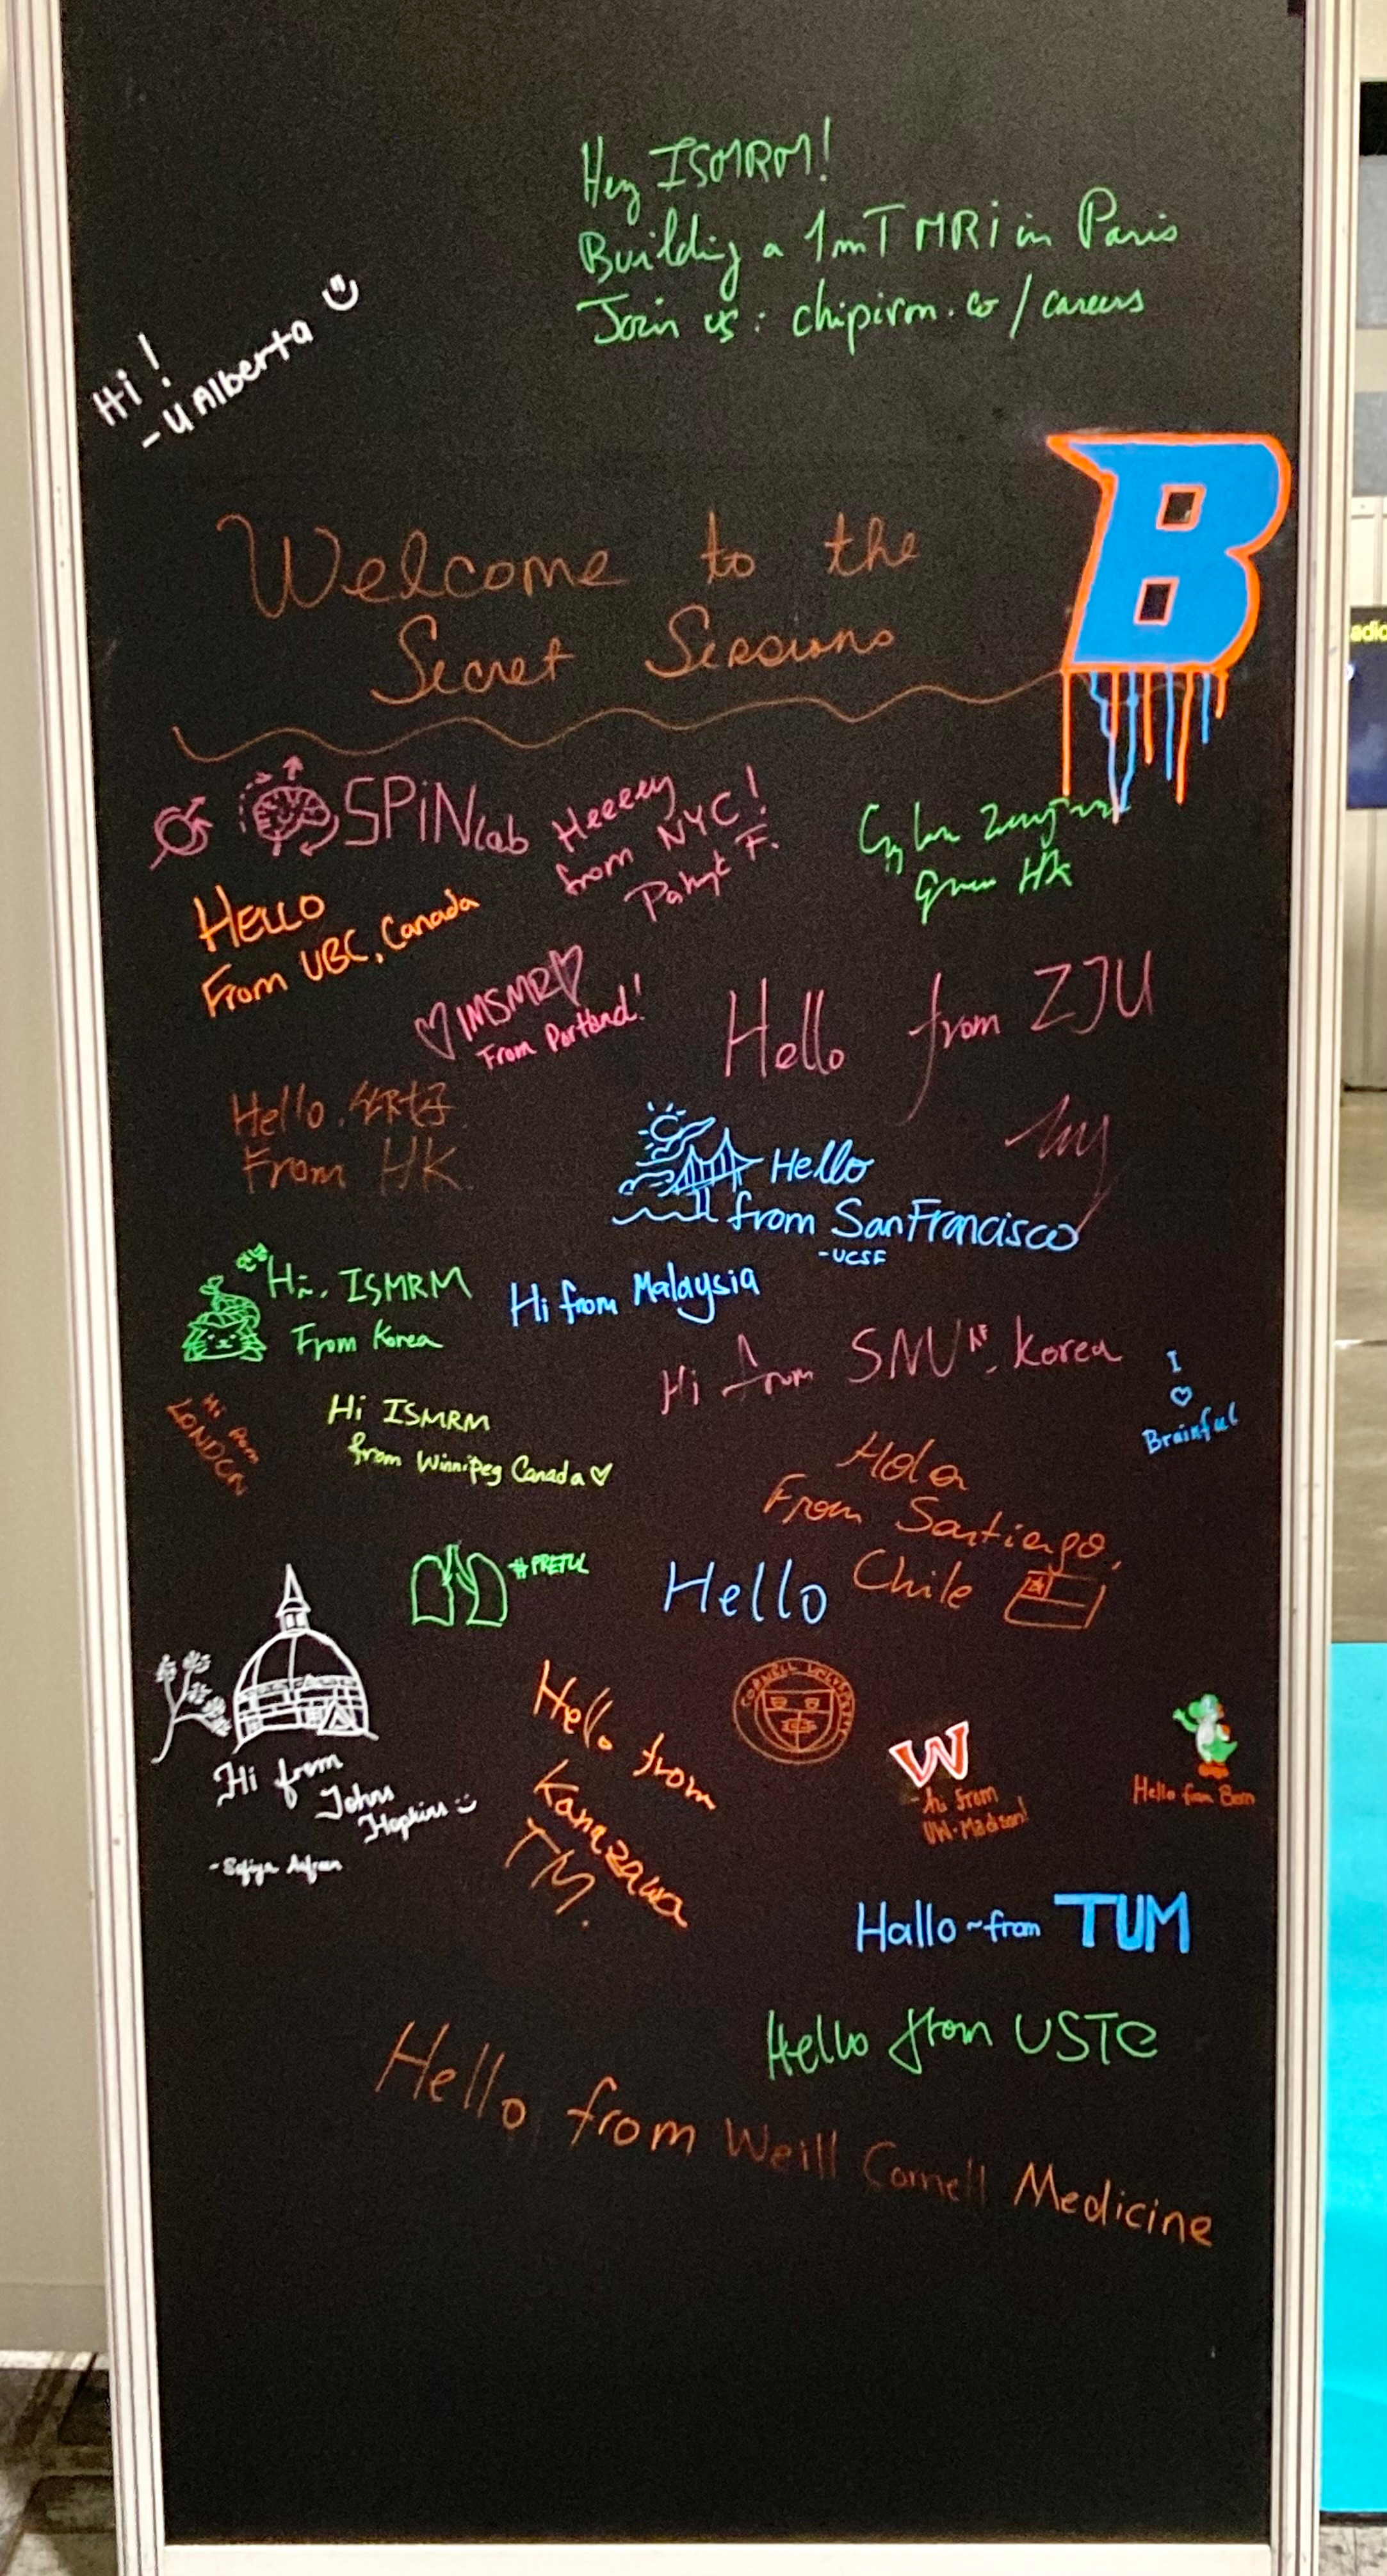 Hey ISMRM!
Building a 1mT MRi in Paris
Join us: chipirm.co/careers
Hi!
-U Alberta
B
Welcome to the
Secret Sessions
SPiNlab
Heeeey
from NYC!
F.
HK
HELLO
From UBC, Canada
IMSMR
From Portland!
Hello from ZJU
Hello. 你好.
From HK.
Hello
from San Francisco
-UCSF
Hi, ISMRM
From Korea
Hi from Malaysia
Hi from SNU, Korea
I
♡
Brainful
Hi from
LONDON
Hi ISMRM
from Winnipeg Canada♡
Hola
From Santiago,
Chile
#PREFUL
Hello
CORNELL UNIVERSITY
Hi from
Johns
Hopkins
Hello from
Kanazawa
TM.
W
-hi from
UW-Madison!
Hello from Bern
Hallo ~from TUM
Hello from USTC
Hello from Weill Cornell Medicine